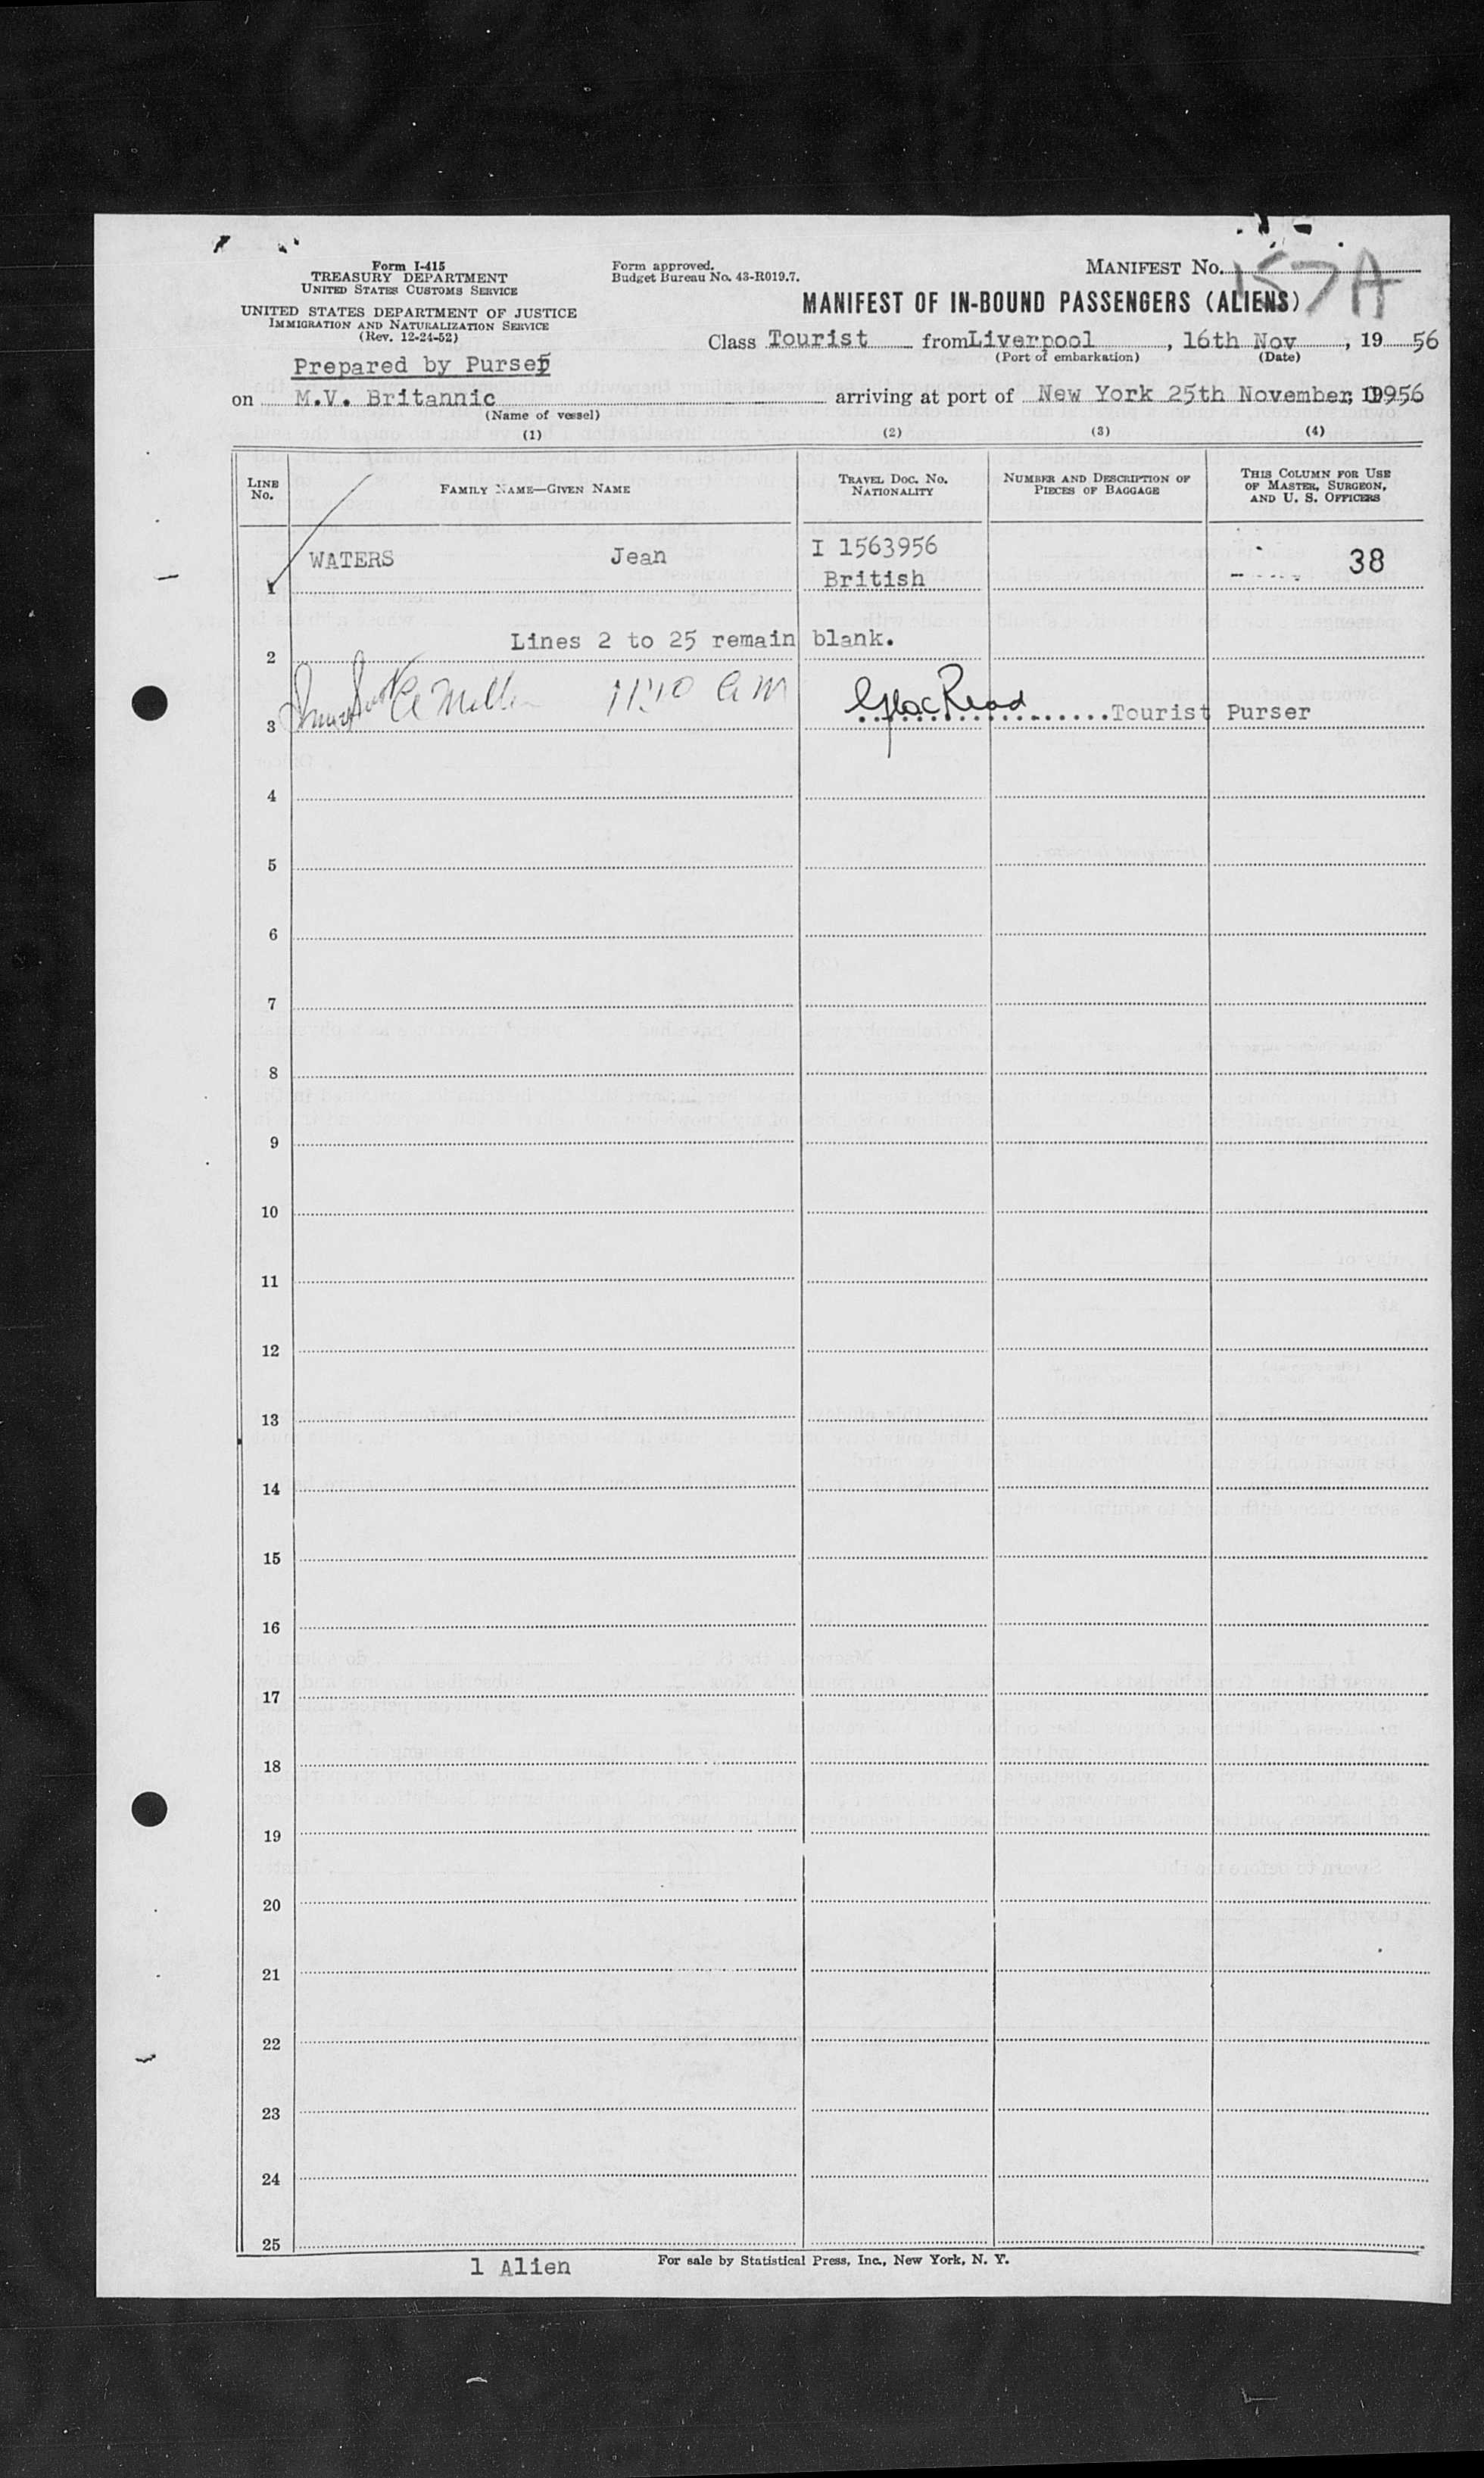 Form I-415
TREASURY DEPARTMENT
UNITED STATES CUSTOMS SERVICE
UNITED STATES DEPARTMENT OF JUSTICE
IMMIGRATION AND NATURALIZATION SERVICE
(Rev. 12-24-52)
Form approved.
Budget Bureau No. 43-R019.7.
MANIFEST No. 157A
MANIFEST OF IN-BOUND PASSENGERS (ALIENS)
Class Tourist from Liverpool, 16th Nov, 19 56
(Port of embarkation) (Date)
Prepared by Purser
on M.V. Britannic arriving at port of New York 25th November, 1956
(Name of vessel)
(1) (2) (3) (4)
LINE No. FAMILY NAME—GIVEN NAME TRAVEL DOC. NO. NATIONALITY NUMBER AND DESCRIPTION OF PIECES OF BAGGAGE THIS COLUMN FOR USE OF MASTER, SURGEON, AND U. S. OFFICERS
1 WATERS Jean I 1563956 38
British
2 Lines 2 to 25 remain blank.
3 11:10 AM Tourist Purser
4
5
6
7
8
9
10
11
12
13
14
15
16
17
18
19
20
21
22
23
24
25
1 Alien
For sale by Statistical Press, Inc., New York, N. Y.